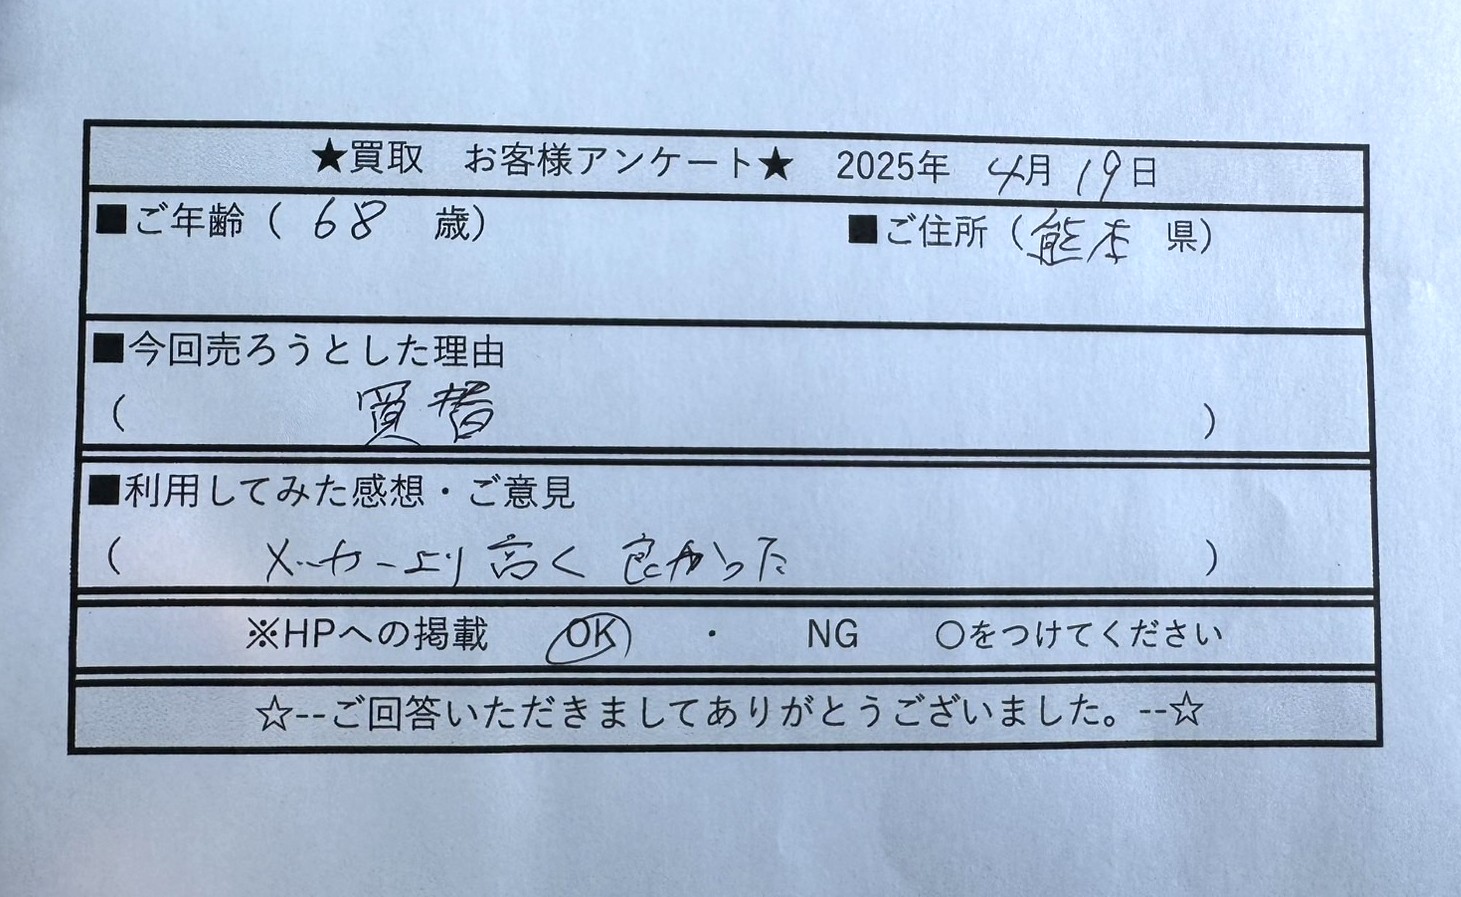 ★買取　お客様アンケート★　2025年 4月 19日
■ご年齢（ 68 歳） ■ご住所（熊本 県）
■今回売ろうとした理由
（ 買替 ）
■利用してみた感想・ご意見
（ メーカーより高く良かった ）
※HPへの掲載　OK　・　NG　○をつけてください
☆--ご回答いただきましてありがとうございました。--☆